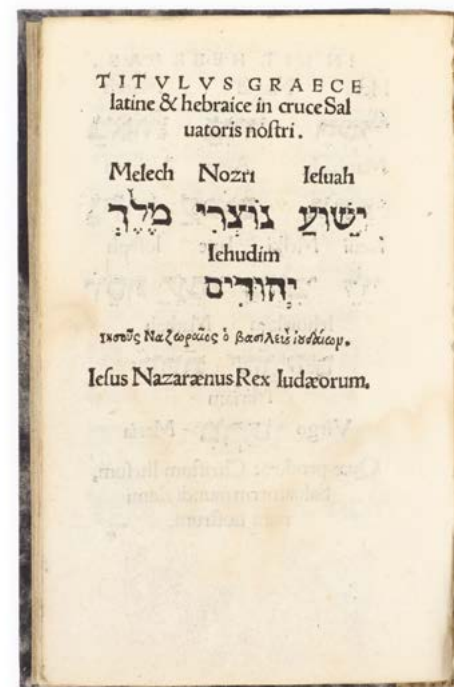 TITVLVS GRAECE
latine & hebraice in cruce Sal
uatoris noſtri.
Melech Nozri Ieſuah
יֵשׁוּעַ נוֹצְרִי מֶלֶךְ
Iehudim
יְהוּדִים
ιησοῦς Ναζωραῖος ὁ βασιλεὺς ἰουδαίωμ.
Ieſus Nazarænus Rex Iudæorum.